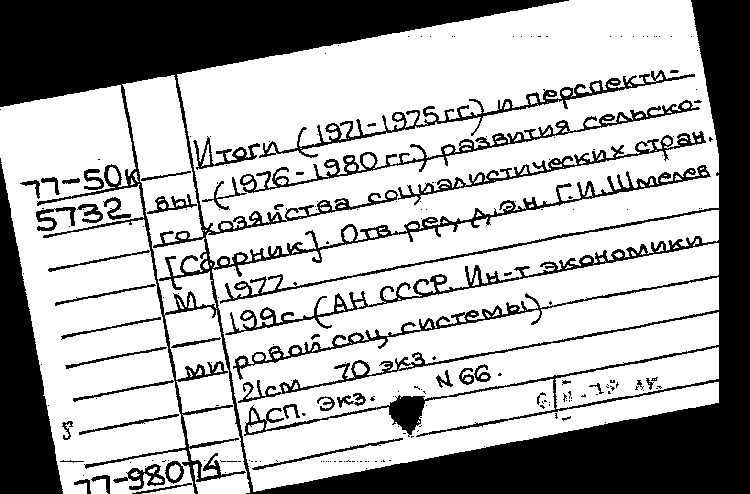 77-50к
5732
Итоги (1971-1975 гг.) и перспекти-
вы (1976-1980 гг.) развития сельско-
го хозяйства социалистических стран.
[Сборник]. Отв. ред. д.э.н. Г.И. Шмелев.
М., 1977.
199с. (АН СССР. Ин-т экономики
мировой соц. системы).
21см. 70 экз.
ДСП. экз. N 66.
77-98074